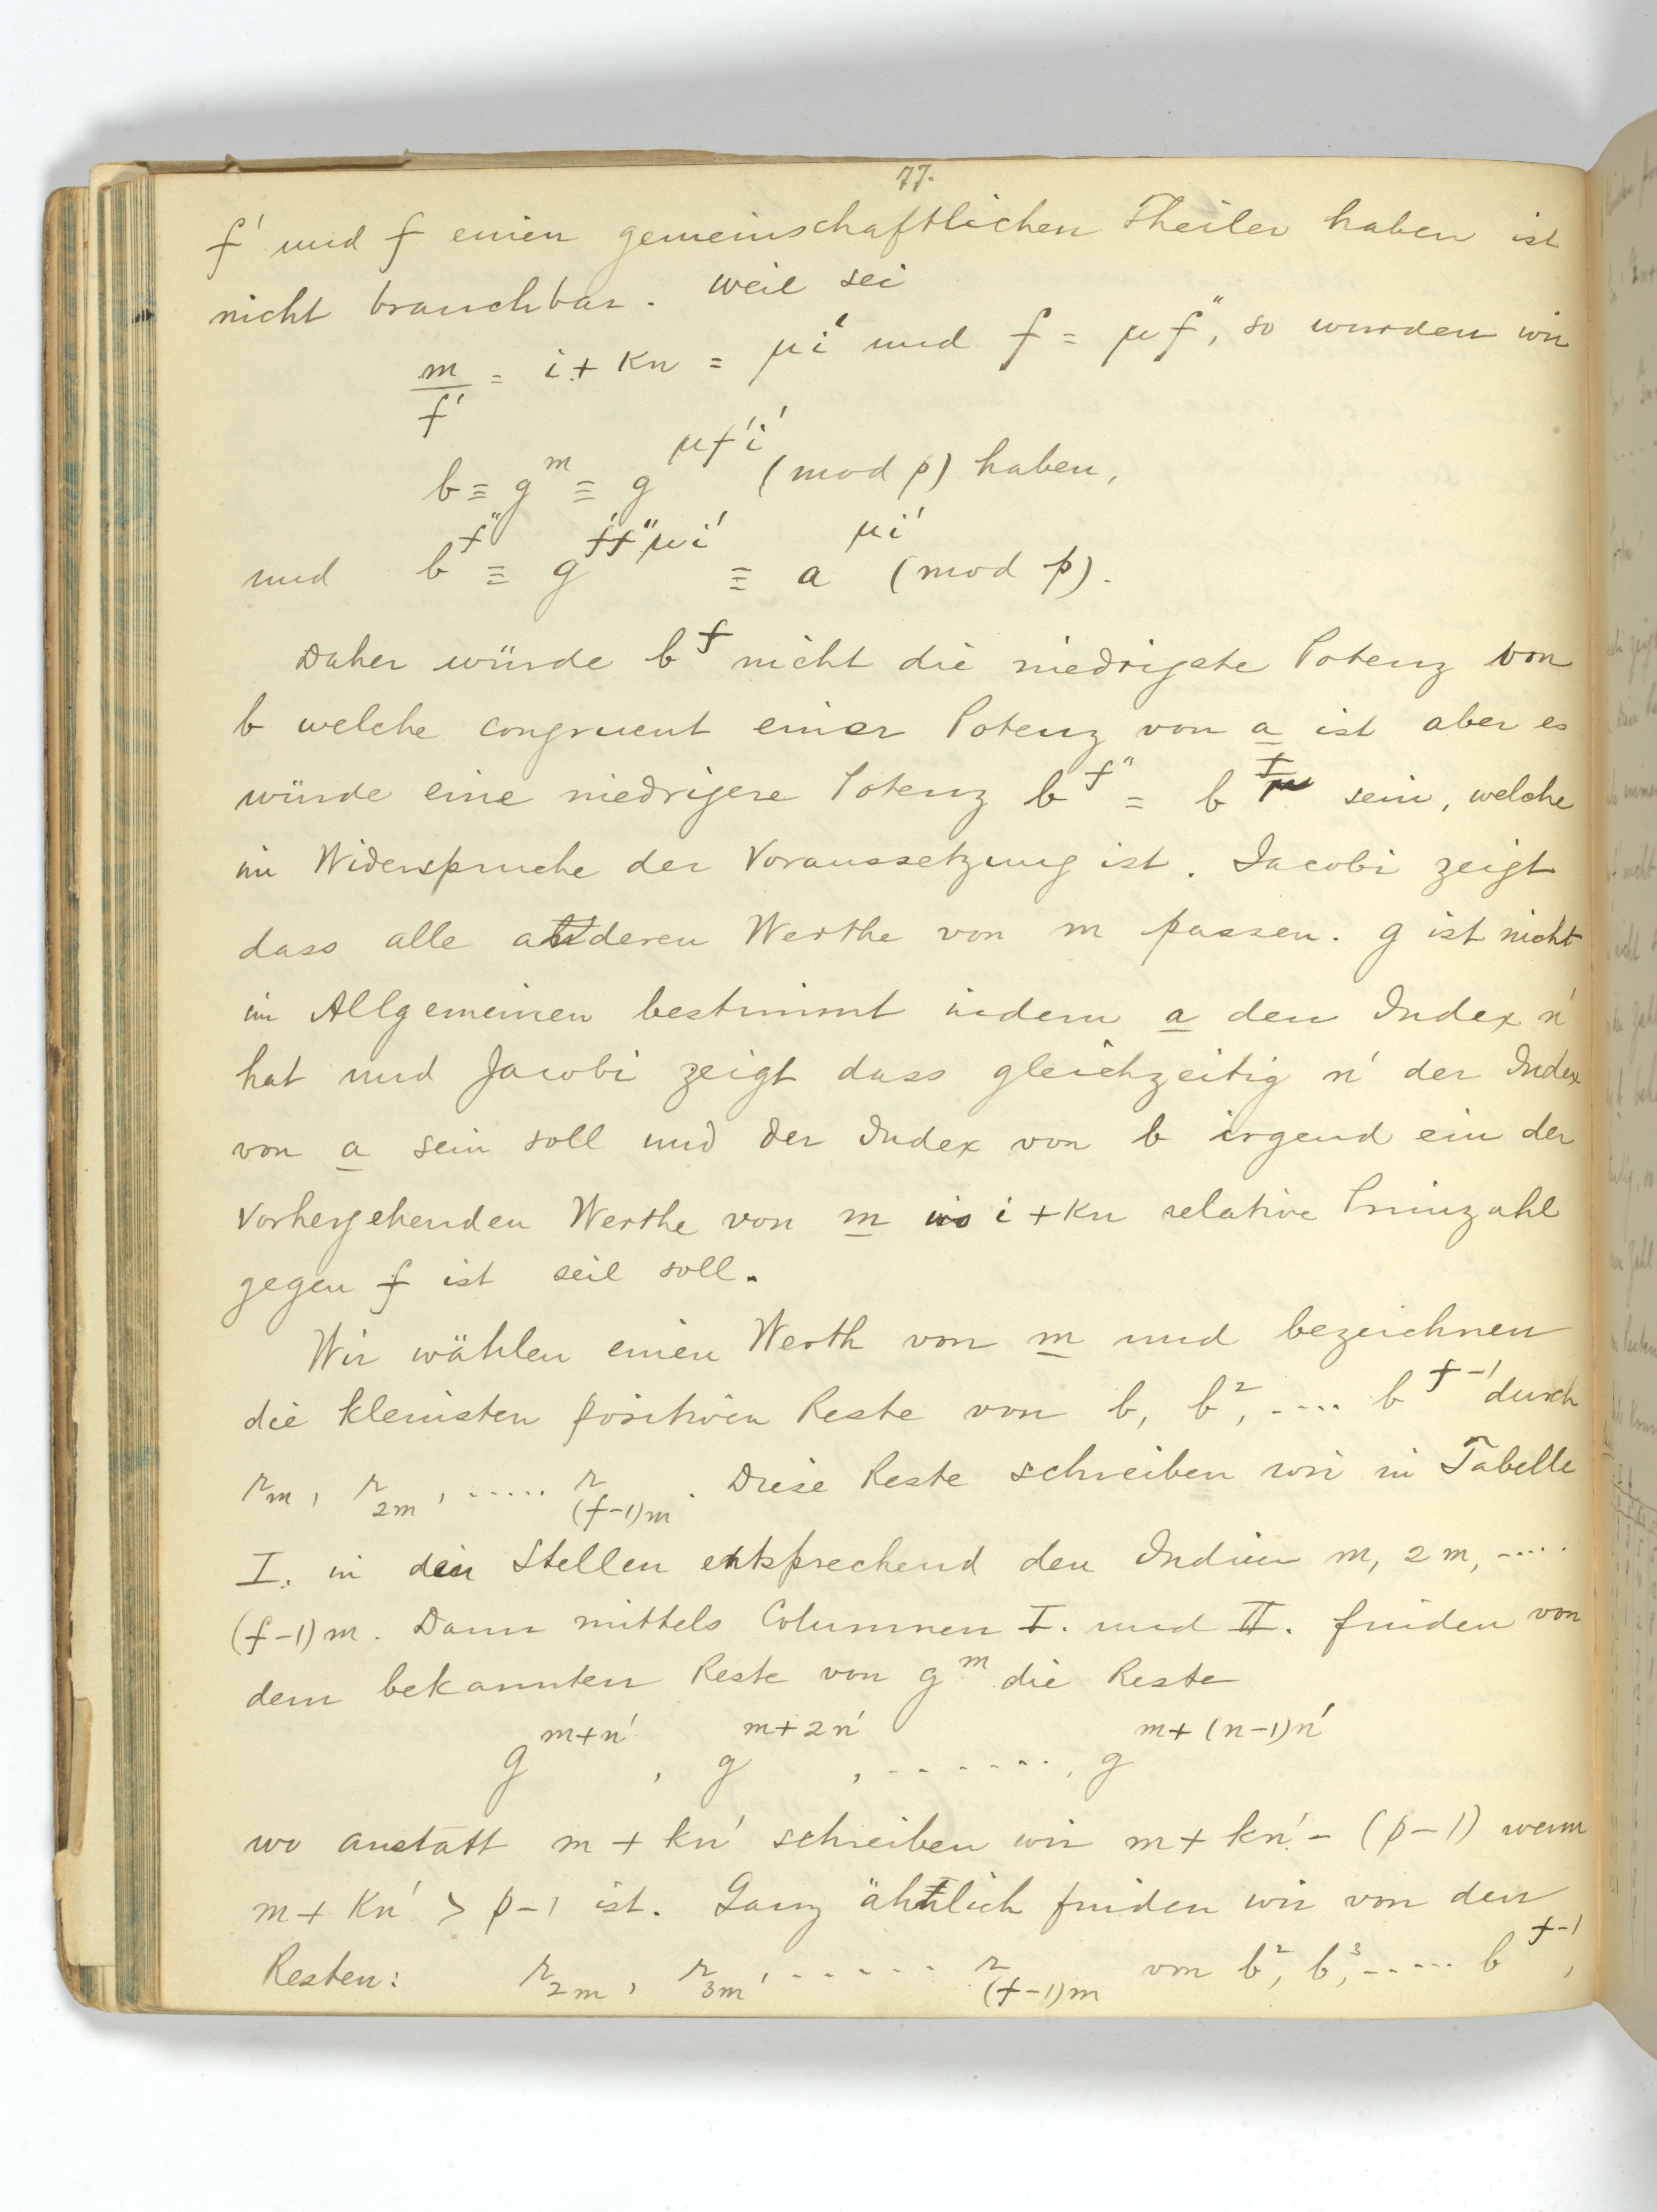 77.
f' und f einen gemeinschaftlichen Theiler haben ist
nicht brauchbar. Weil sei
m/f' = i + kn = μi' und f = μf'', so wurden wir
b ≡ g^m ≡ g^{μf'i'} (mod p) haben,
und b^{f''} ≡ g^{f'f''μi'} ≡ a^{μi'} (mod p).
Daher würde b^f nicht die niedrigste Potenz von
b welche congruent einer Potenz von a ist aber es
würde eine niedrigere Potenz b^{f''} = b^{f/μ} sein, welche
im Widerspruche der Voraussetzung ist. Jacobi zeigt
dass alle anderen Werthe von m passen. g ist nicht
im Allgemeinen bestimmt indem a den Index n'
hat und Jacobi zeigt dass gleichzeitig n' der Index
von a sein soll und der Index von b irgend ein der
vorhergehenden Werthe von m wo i + kn relative Primzahl
gegen f ist seil soll.
Wir wählen einen Werth von m und bezeichnen
die kleinsten positiven Reste von b, b^2, .... b^{f-1} durch
r_m, r_{2m}, ..... r_{(f-1)m}. Diese Reste schreiben wir in Tabelle
I. in den Stellen entsprechend den Indicien m, 2m, .....
(f-1)m. Dann mittels Columnen I. und II. finden von
dem bekannten Reste von g^m die Reste
g^{m+n'}, g^{m+2n'}, ......., g^{m+(n-1)n'}
wo anstatt m + kn' schreiben wir m + kn' - (p-1) wenn
m + kn' > p-1 ist. Ganz ähnlich finden wir von den
Resten: r_{2m}, r_{3m}, ...... r_{(f-1)m} von b^2, b^3, ..... b^{f-1},